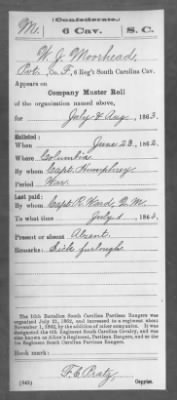 (Confederate.)
M. 6 Cav. S. C.
W. J. Moorhead,
Pvt., Co. F, 6 Reg't South Carolina Cav.
Appears on
Company Muster Roll
of the organization named above,
for July & Aug, 1863.
Enlisted:
When June 23, 1862.
Where Columbia
By whom Capt. Humphrey
Period War.
Last paid:
By whom Capt. R. Ward, Q. M.
To what time July 1, 1863.
Present or absent Absent.
Remarks: Sick furlough
The 16th Battalion South Carolina Partisan Rangers was
organized July 21, 1862, and increased to a regiment about
November 1, 1862, by the addition of other companies. It was
designated the 6th Regiment South Carolina Cavalry, and was
also known as Aiken's Regiment, Partisan Rangers, and as
1st Regiment South Carolina Partisan Rangers.
Book mark:
F. C. Pratz,
(642) Copyist.